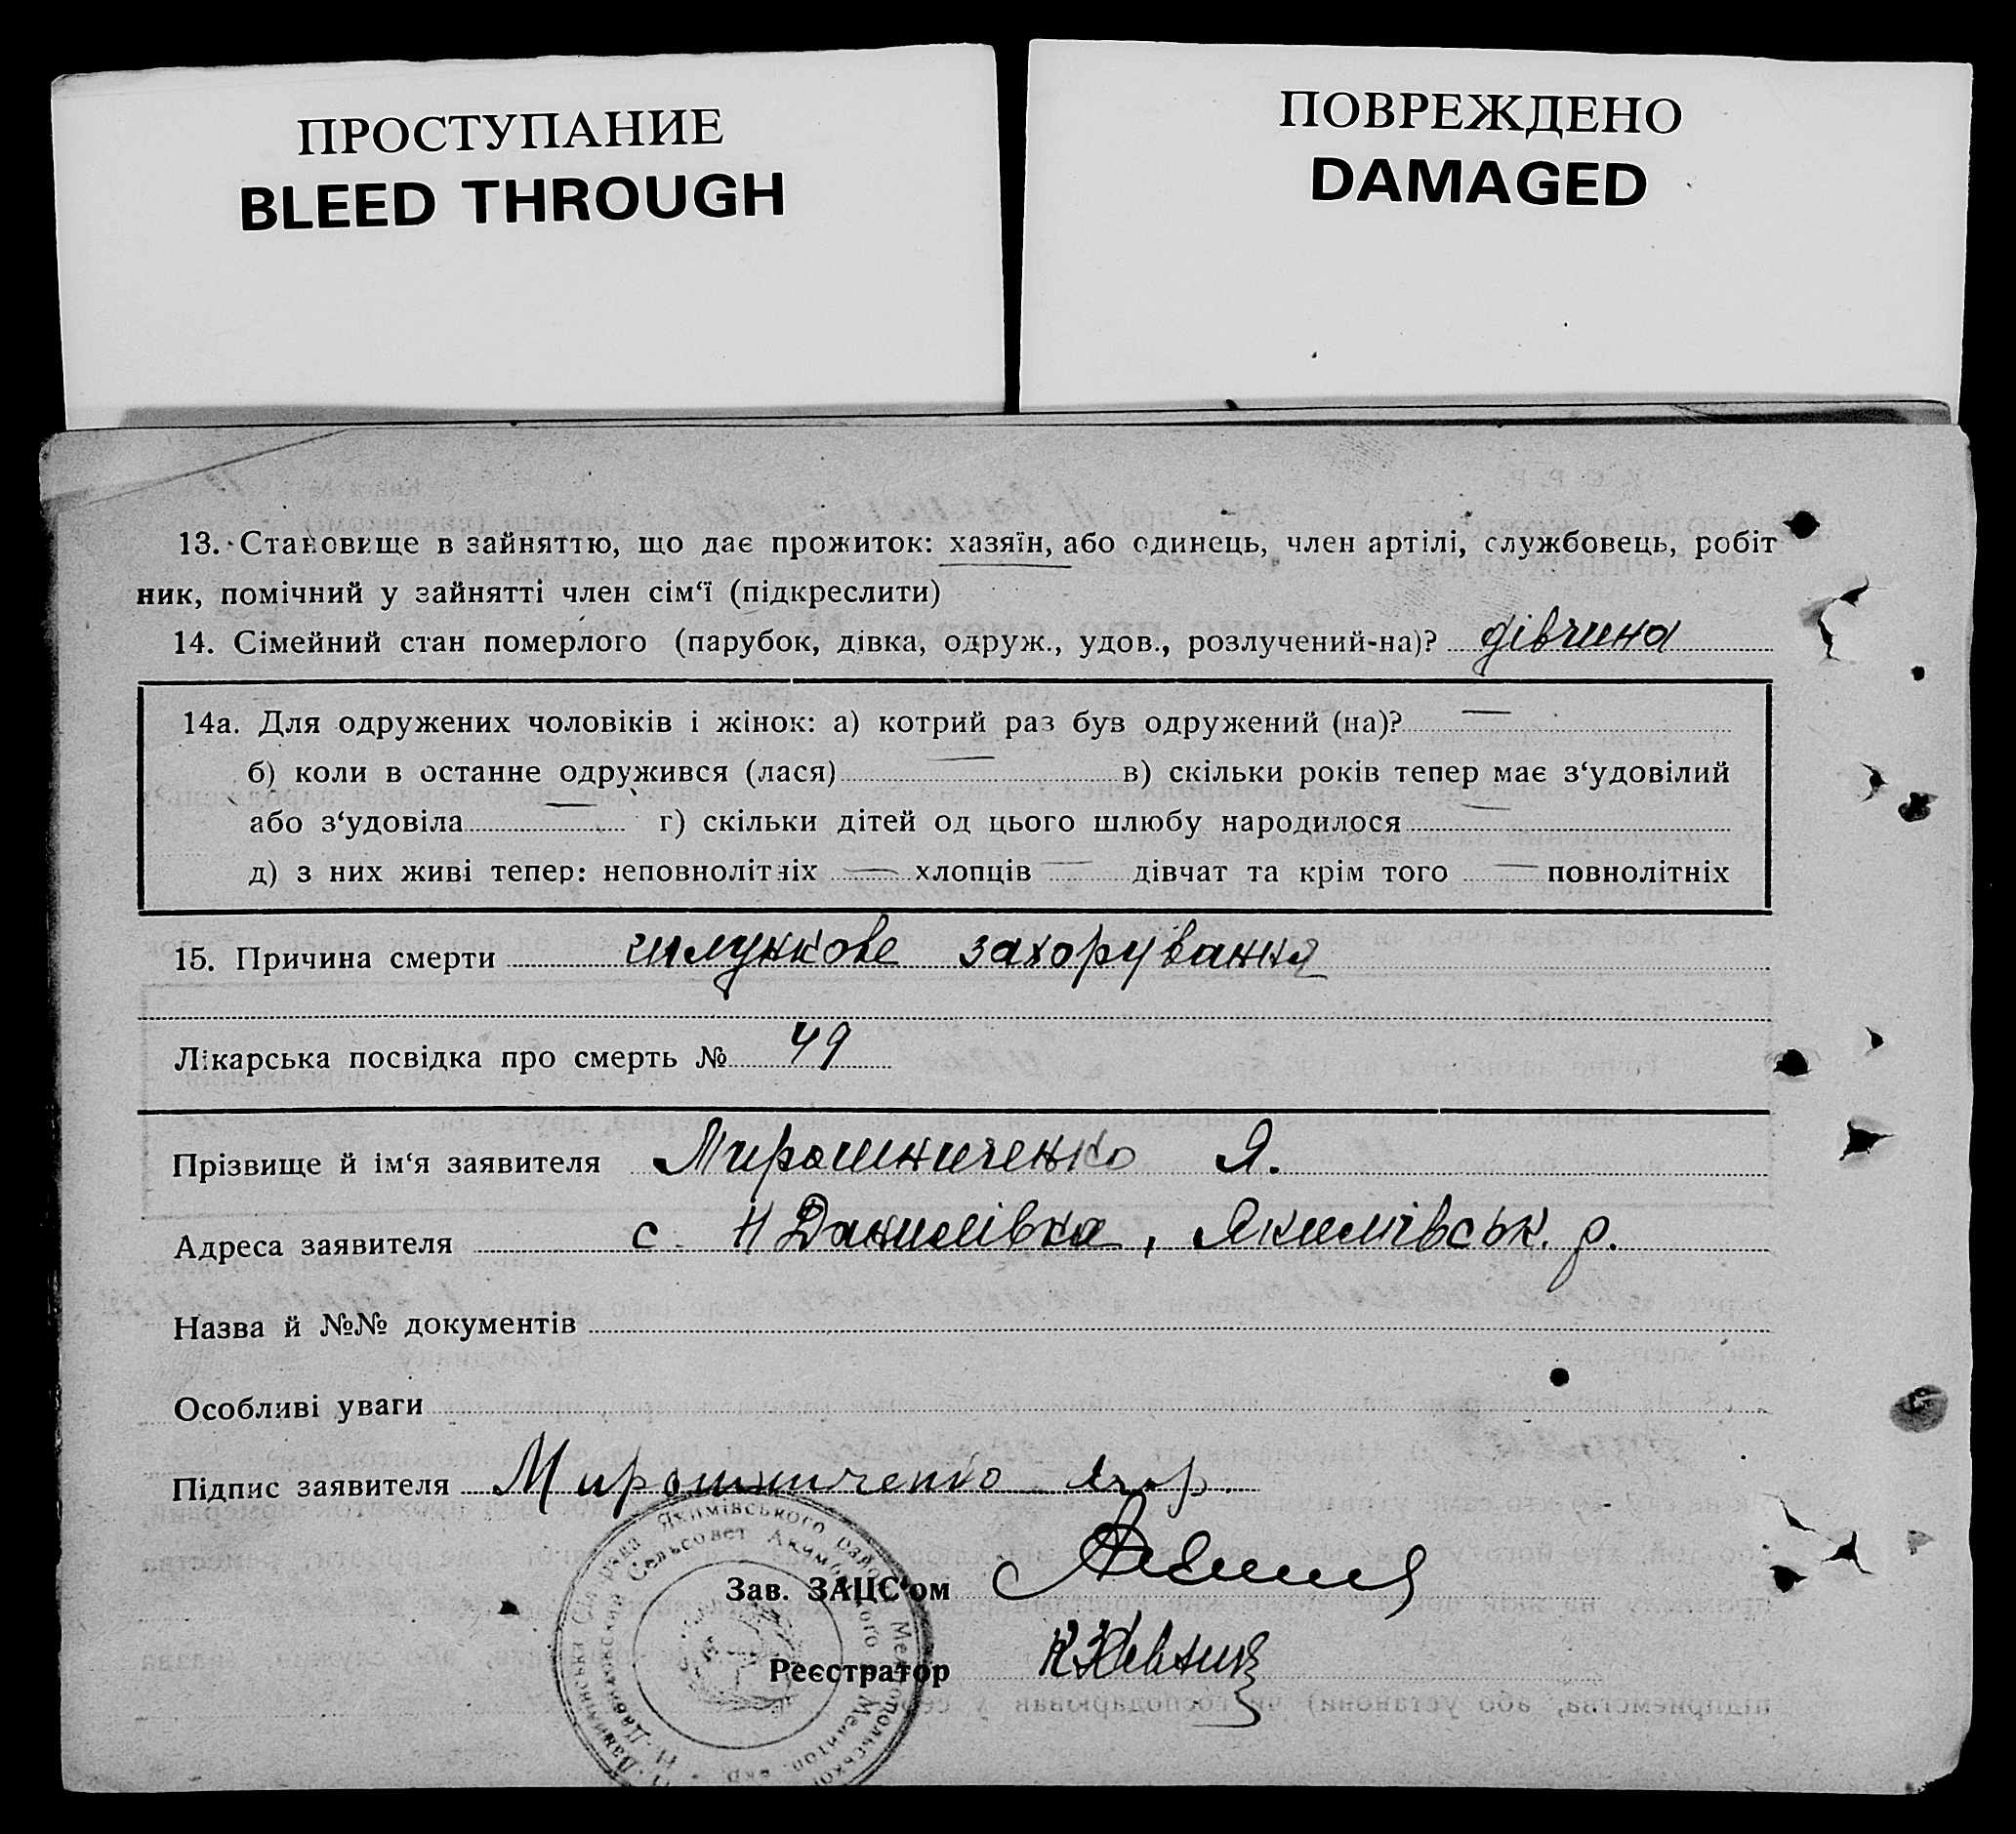 ПРОСТУПАНИЕ
BLEED THROUGH
ПОВРЕЖДЕНО
DAMAGED
13. Становище в зайняттю, що дає прожиток: хазяїн, або одинець, член артілі, службовець, робіт
ник, помічний у зайнятті член сім‘ї (підкреслити)
14. Сімейний стан померлого (парубок, дівка, одруж., удов., розлучений-на)? дівчина
14а. Для одружених чоловіків і жінок: а) котрий раз був одружений (на)? —
б) коли в останне одружився (лася) — в) скільки років тепер має з‘удовілий
або з‘удовіла — г) скільки дітей од цього шлюбу народилося —
д) з них живі тепер: неповнолітніх — хлопців — дівчат та крім того — повнолітніх
15. Причина смерти шлункове захорування
Лікарська посвідка про смерть № 49
Прізвище й ім‘я заявителя Мирошниченко Я.
Адреса заявителя с. Н Данилівка, Якимівськ. р.
Назва й №№ документів
Особливі уваги
Підпис заявителя Мирошниченко
Зав. ЗАЦС‘ом
Реєстратор
Якимівського Мелітопольської
Сельсовет